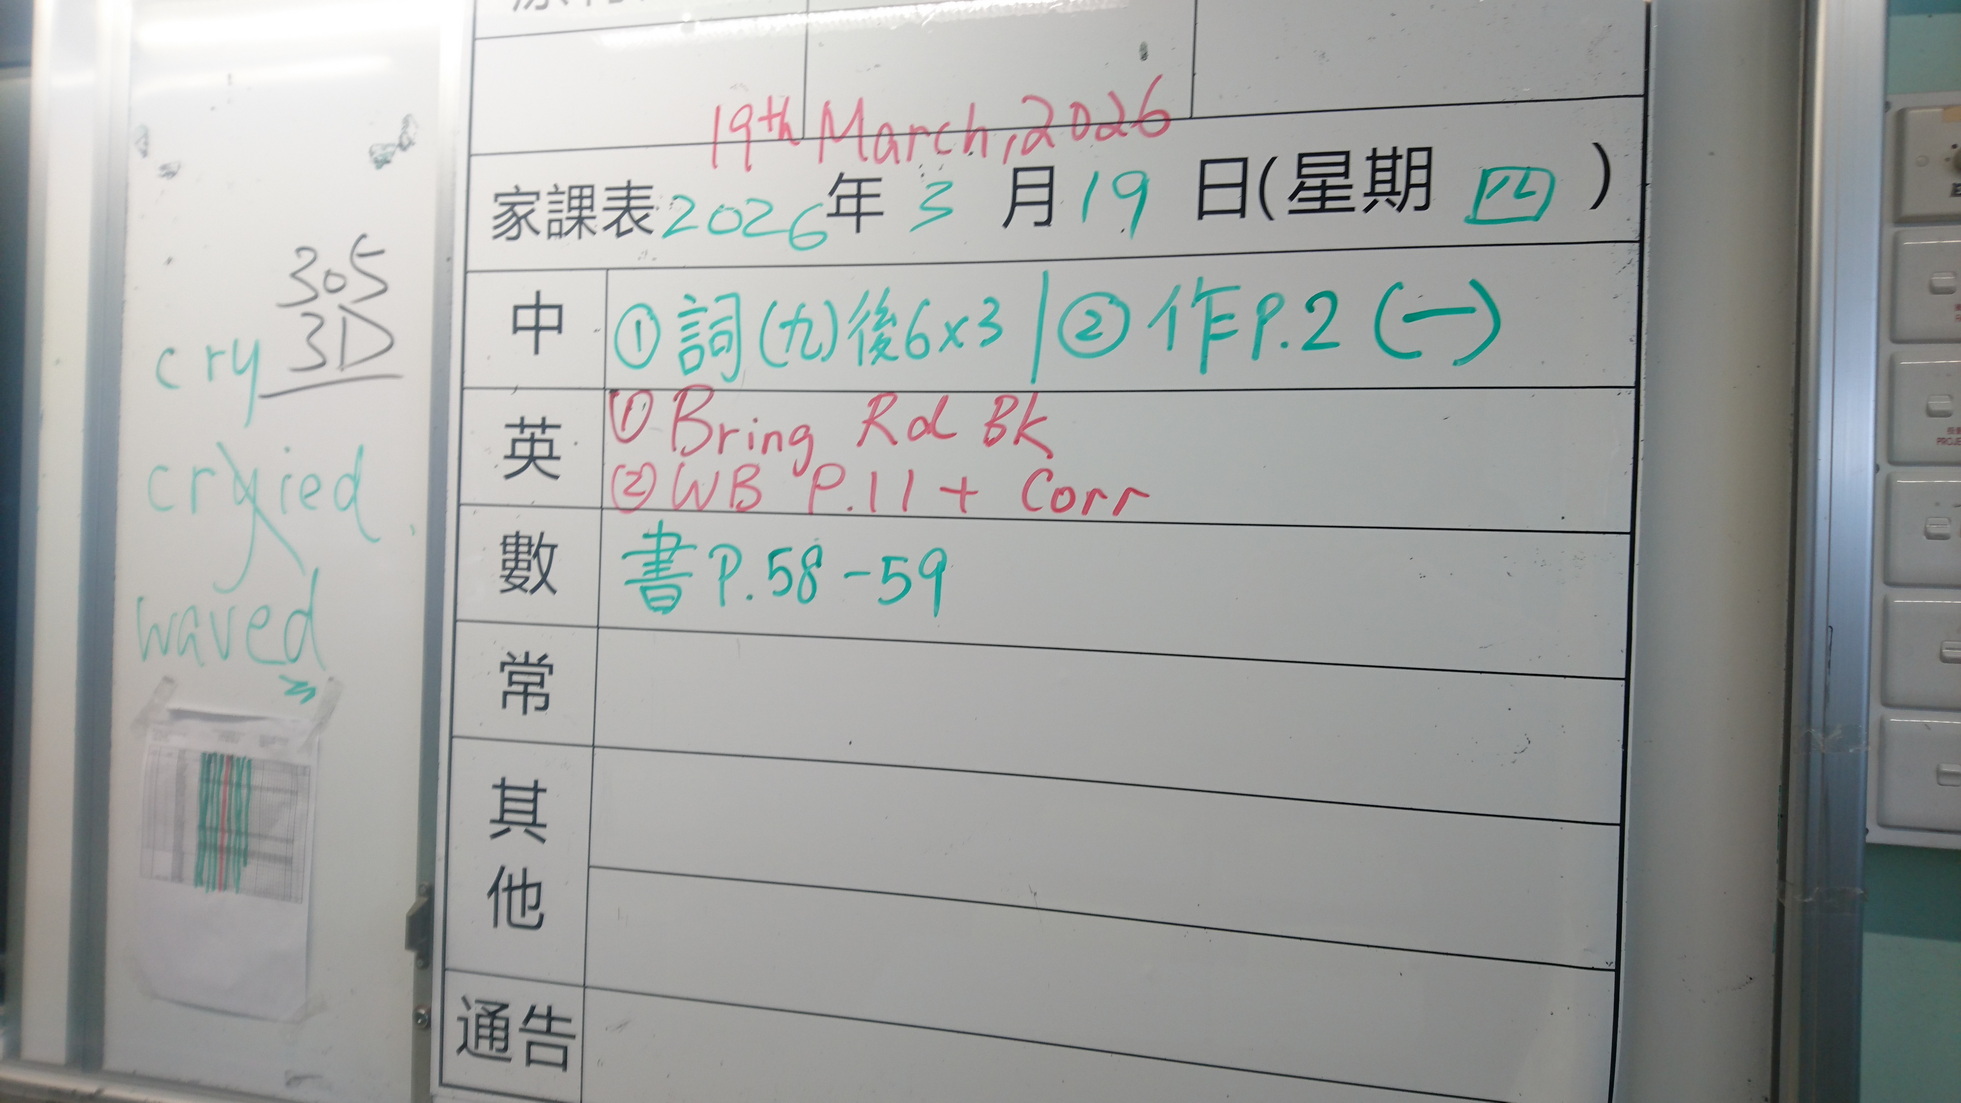 305
3D
cry
cryied
waved
19th March, 2026
家課表2026年3月19日(星期四)
中 ①詞(九)後6x3 | ②作P.2(一)
英 ①Bring Rd Bk
②WB P.11 + Corr
數 書P.58-59
常
其他
通告